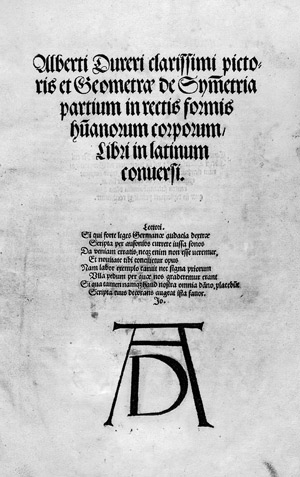 Alberti Dureri clarissimi picto-
ris et Geometræ de Sym̃etria
partium in rectis formis
hũanorum corporum/
Libri in latinum
conuersi.
Lectori.
Si qui forte leges Germanæ audacia dextræ
Scripta per ausonios currere iussa sonos
Da veniam erratis, neq; enim non esse veremur,
Et nouitate tibi concilietur opus
Nam labor exemplo caruit nec signa priorum
Vlla pedum per quæ nos graderemur erant
Si qua tamen haud nostra omnia dãno, placebũt
Scripta tuus decoratis augeat ista fauor.
Jo.
AD